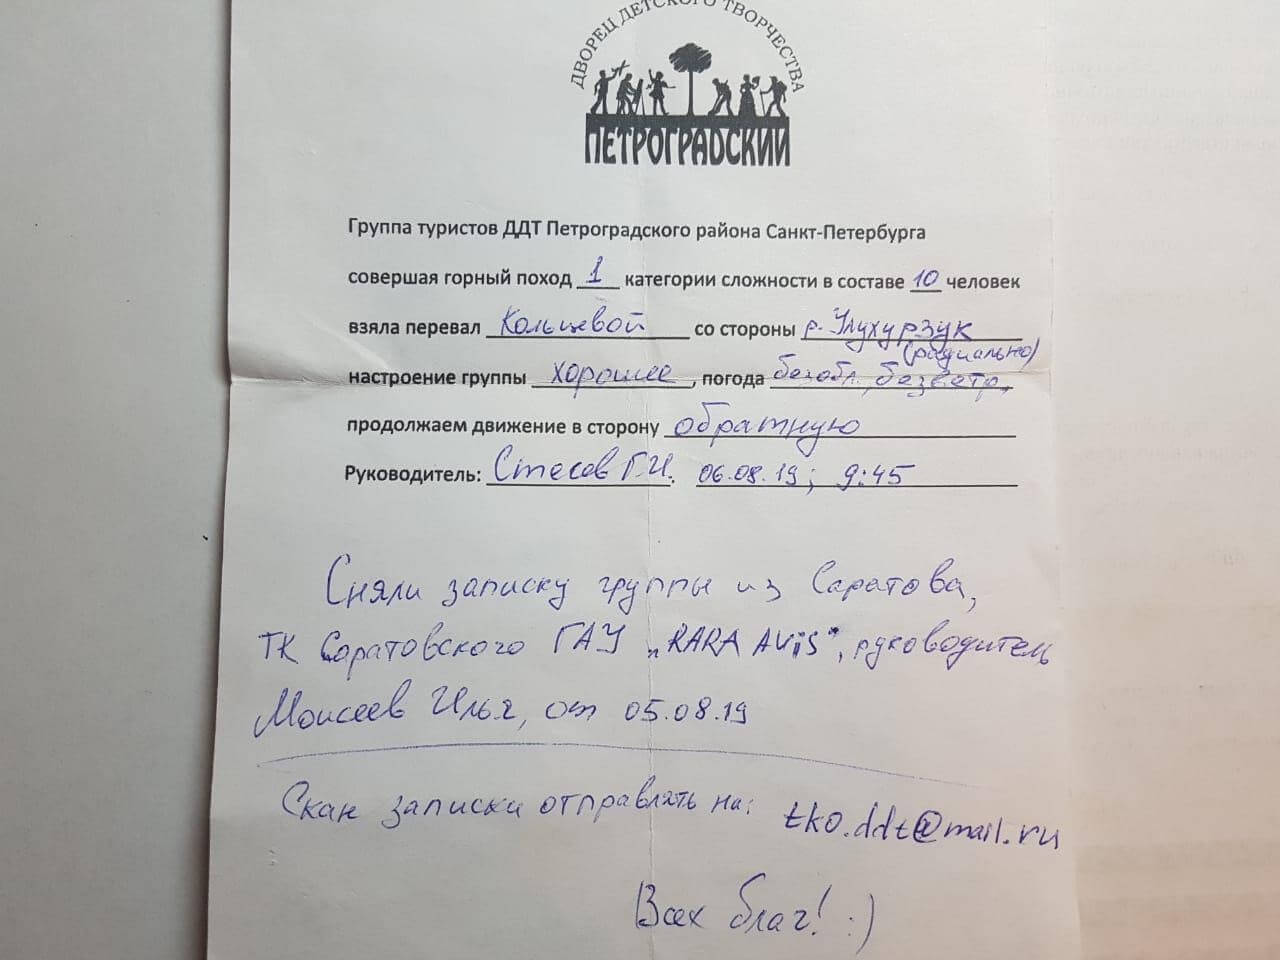 ДВОРЕЦ ДЕТСКОГО ТВОРЧЕСТВА
ПЕТРОГРАДСКИЙ
Группа туристов ДДТ Петроградского района Санкт-Петербурга
совершая горный поход 1 категории сложности в составе 10 человек
взяла перевал Кольцевой со стороны р. Улухурзук
(радиально)
настроение группы хорошее, погода безобл., безветр.,
продолжаем движение в сторону обратную
Руководитель: Стесев Г.И. 06.08.19; 9:45
Сняли записку группы из Саратова,
ТК Саратовского ГАУ „RARA AViS", руководитель
Моисеев Илья, от 05.08.19
Скан записки отправлять на: tko.ddt@mail.ru
Всех благ! :)